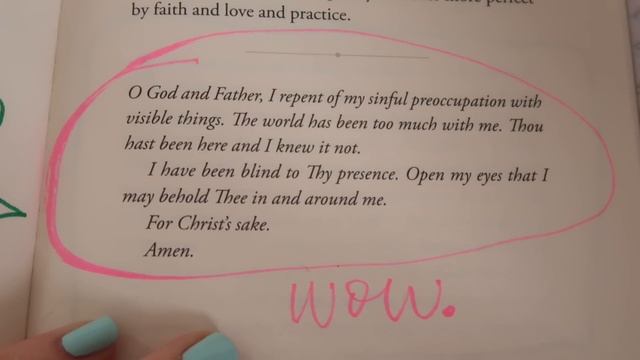 by faith and love and practice.
O God and Father, I repent of my sinful preoccupation with
visible things. The world has been too much with me. Thou
hast been here and I knew it not.
I have been blind to Thy presence. Open my eyes that I
may behold Thee in and around me.
For Christ's sake.
Amen.
wow.